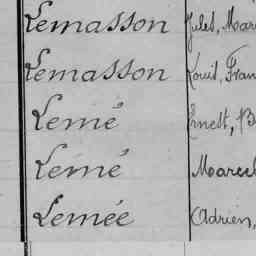 Lemasson Jules, Mar
Lemasson Louis, Fran
Lemé Ernest, B
Lemé Marcel
Lemée Adrien,